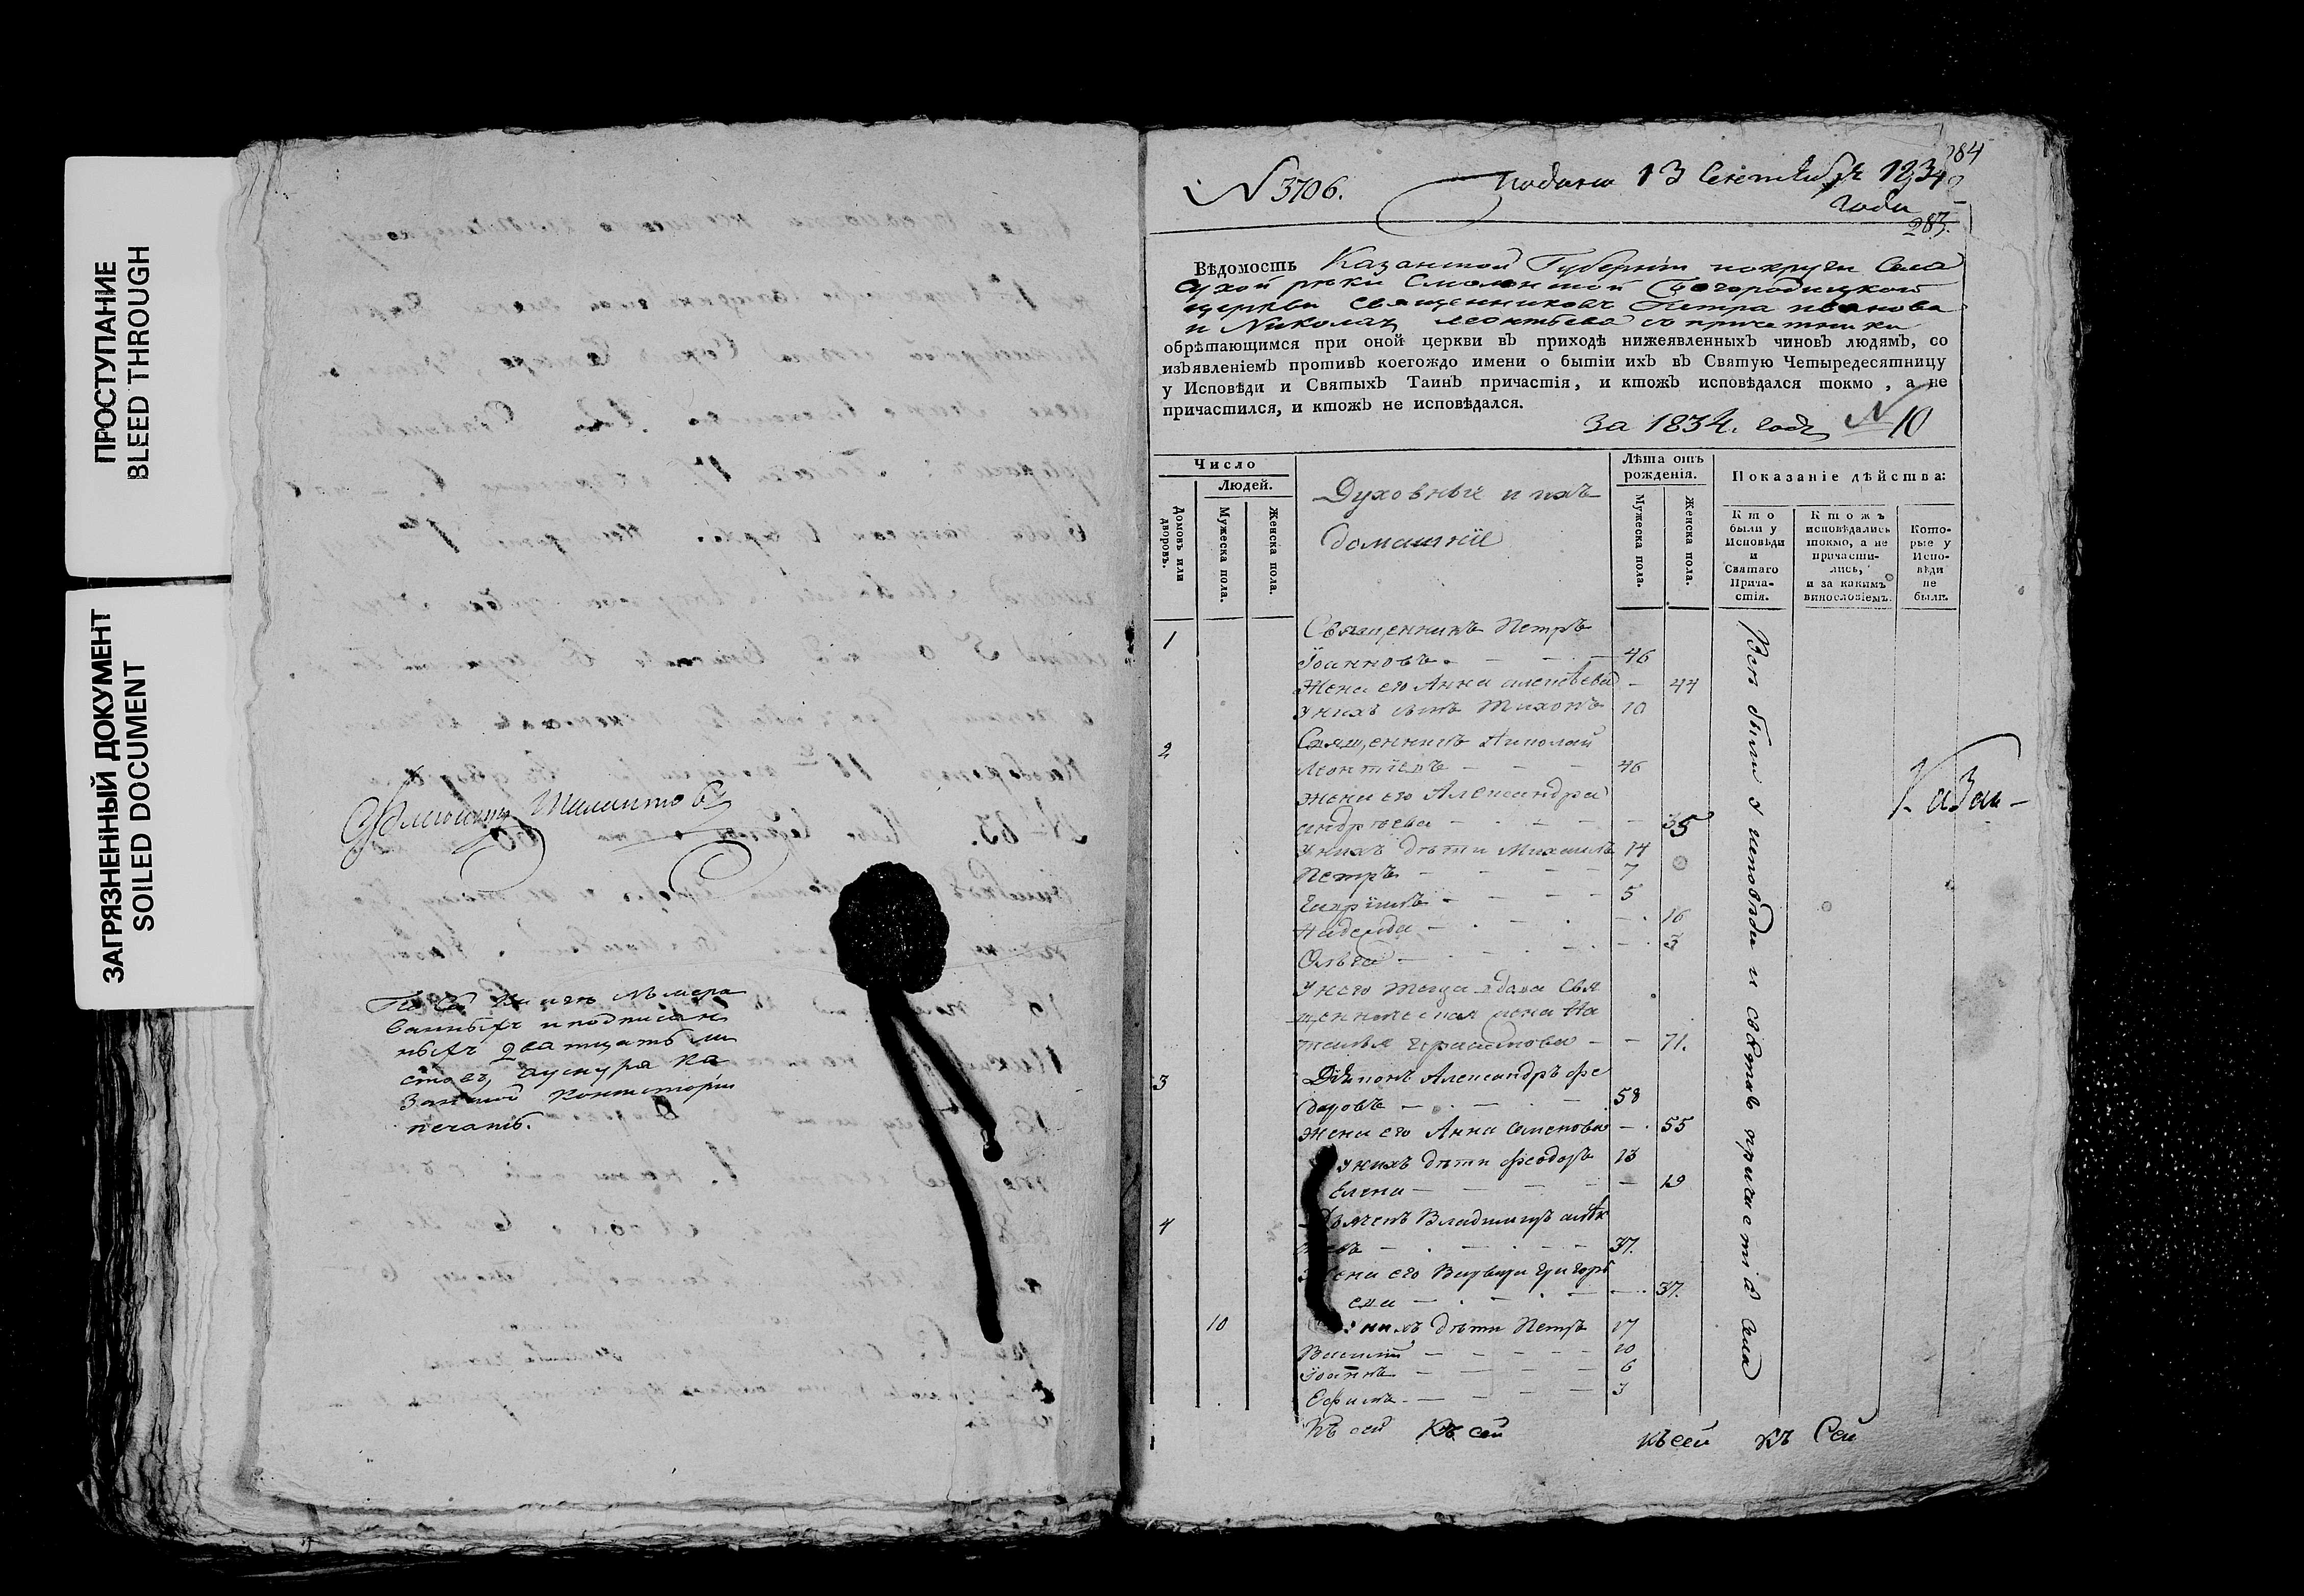 ПРОСТУПАНИЕ
BLEED THROUGH
ЗАГРЯЗНЕННЫЙ ДОКУМЕНТ
SOILED DOCUMENT
въ сей книге
ванныхъ и подписан
ныхъ двадцать ли
стовъ, а у снура Ка
занской Консисторіи
печать.
284
N 3706.
подана 13 Сентября 1834
года
283.
Вѣдомость Казанской Губерніи и округи Села
Сухой рѣки Смоленской Богородицкой
церкви священниковъ Петра Иванова
и Николая Леонтьева съ причетники
обрѣтающимся при оной церкви въ приходѣ нижеявленныхъ чиновъ людямъ, со
изъявленіемъ противъ коегождо имени о бытіи ихъ въ Святую Четыредесятницу
у Исповѣди и Святыхъ Таинъ причастія, и ктожъ исповѣдался токмо, а не
причастился, и ктожъ не исповѣдался.
за 1834. годъ N 10
Число
Людей.
Домовъ или дворовъ.
Мужеска пола.
Женска пола.
Духовные и ихъ
домашніе
Лѣта отъ
рожденія.
Мужеска пола.
Женска пола.
Показаніе дѣйства:
Кто
были у
Исповѣди
и
Святаго
Прича-
стія.
Ктожъ
исповѣдались
токмо, а не
причасти-
лись,
и за какимъ
винословіемъ.
Кото-
рые у
Испо-
вѣди
не
были.
1 Священникъ Петръ
Іоанновъ. — — — 46
Жена его Анна Алексѣева — 44
У нихъ сынъ Тихонъ 10
2 Священникъ Николай
Леонтіевъ — — — 46
жена его Александра
Андреева — — — 35
У нихъ дѣти Михаилъ 14
Петръ — — — — 7
Гавріилъ — — — 5
Надежда — — — 16
Ольга — — — 3
У него теща вдова Свя
щенническая жена На
талья Герасимова — — 71.
3 Діаконъ Александръ Фе
доровъ — — — 58
Жена его Анна Семенова — 55
У нихъ дѣти Феодоръ 13
Елена — — — — 19
4 Дьячекъ Владимиръ Алек
— — — 37.
Жена его Варвара Григорь
ева — — — 37.
10 У нихъ дѣти Петръ 17
Василій — — — 10
Іоаннъ — — — 6
Ефимъ — — — 3
Всѣ были у исповѣди и святаго причастія
Казан—
Къ сей Къ сей къ сей къ Сей